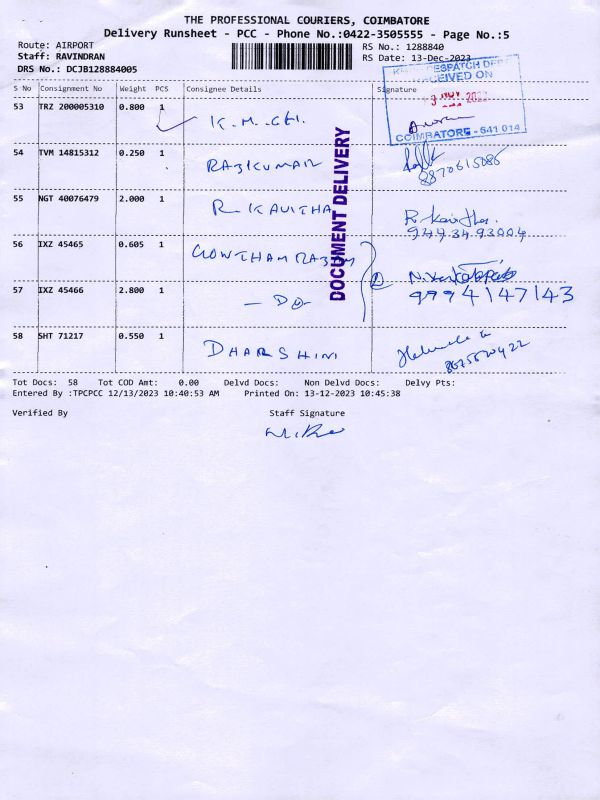 THE PROFESSIONAL COURIERS, COIMBATORE
Delivery Runsheet - PCC - Phone No.:0422-3505555 - Page No.:5
Route: AIRPORT
RS No.: 1288840
Staff: RAVINDRAN
RS Date: 13-Dec-2023
DRS No.: DCJB128884005
DESPATCH
RECEIVED ON
COIMBATORE - 641 014
S No Consignment No Weight PCS Consignee Details Signature
53 TRZ 200005310 0.800 1 K.M.CH.
54 TVM 14815312 0.250 1 RAJKUMAR
8870615085
55 NGT 40076479 2.000 1 R. KAVITHA R. Kavitha.
9443493004
56 IXZ 45465 0.605 1 GOWTHAM
57 IXZ 45466 2.800 1 - DO
9994147143
58 SHT 71217 0.550 1 DHARSHINI
DOCUMENT DELIVERY
Tot Docs: 58 Tot COD Amt: 0.00 Delvd Docs: Non Delvd Docs: Delvy Pts:
Entered By :TPCPCC 12/13/2023 10:40:53 AM Printed On: 13-12-2023 10:45:38
Verified By Staff Signature